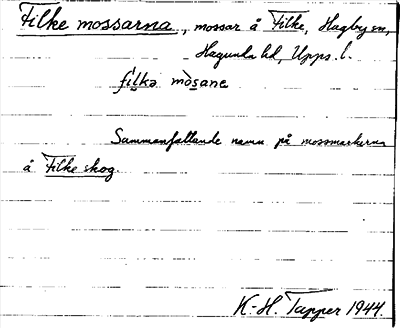 Filke mossarna, mossar å Filke, Hagby sn,
Hagunda hd, Upps. l.
filkə mòsane
Sammanfattande namn på mossmarkerna
å Filke skog.
K.-H. Tapper 1944.